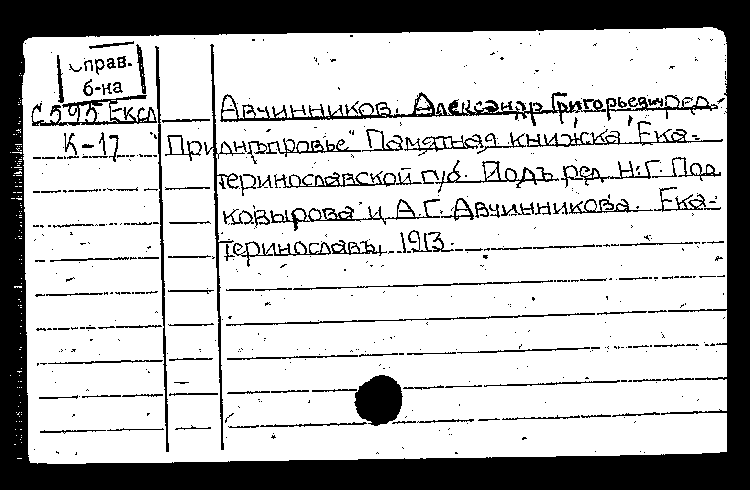 Справ.
б-на
С595 Ексл Авчинников, Александр Григорьевич ред.
К-17 "Приднѣпровье" Памятная книжка Ека-
теринославской губ. Подъ ред. Н.Г. Под
ковырова и А.Г. Авчинникова. Ека-
теринославъ, 1913.